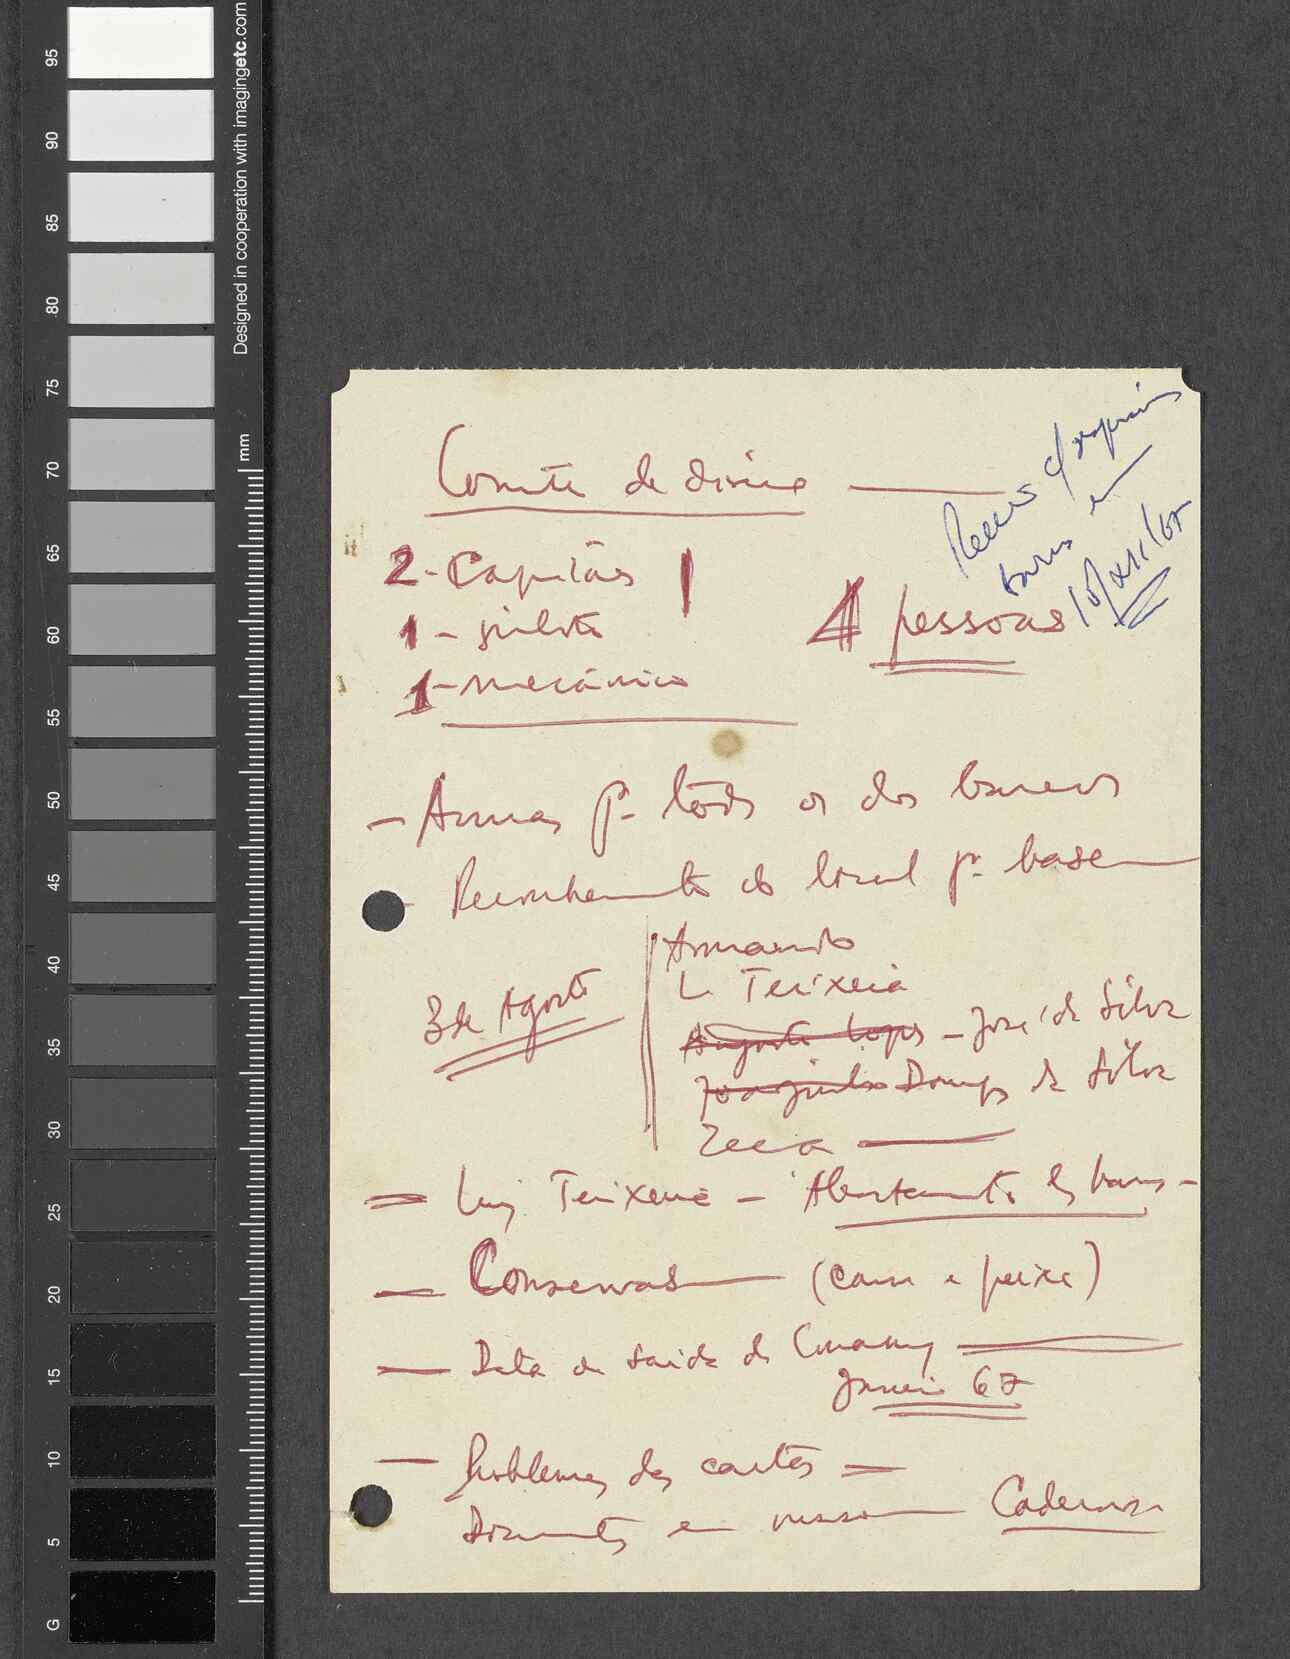 Designed in cooperation with imagingetc.com
mm
95
90
85
80
75
70
65
60
55
50
45
40
35
30
25
20
15
10
5
G
Comité de
10/XII/67
2 - Capitães
1 - piloto
4 pessoas
1 - mecânico
- Armas p. todos os dos barcos
- Reconhecimento do local p. base
3 de Agosto
Armando
L. Teixeira
Augusto Lopes - José da Silva
Joaquim Domgs da Silva
Zeca
Luiz Teixeira - barcos -
- Conservas (carne e peixe)
- Data da saida de Conakry
Janeiro 67
- Problemas das cartas
Documentos em russo Cadernos